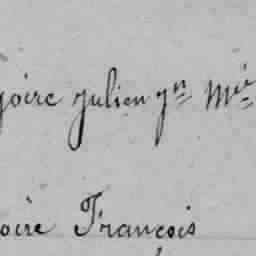 goire Julien Jn Mie
oire François